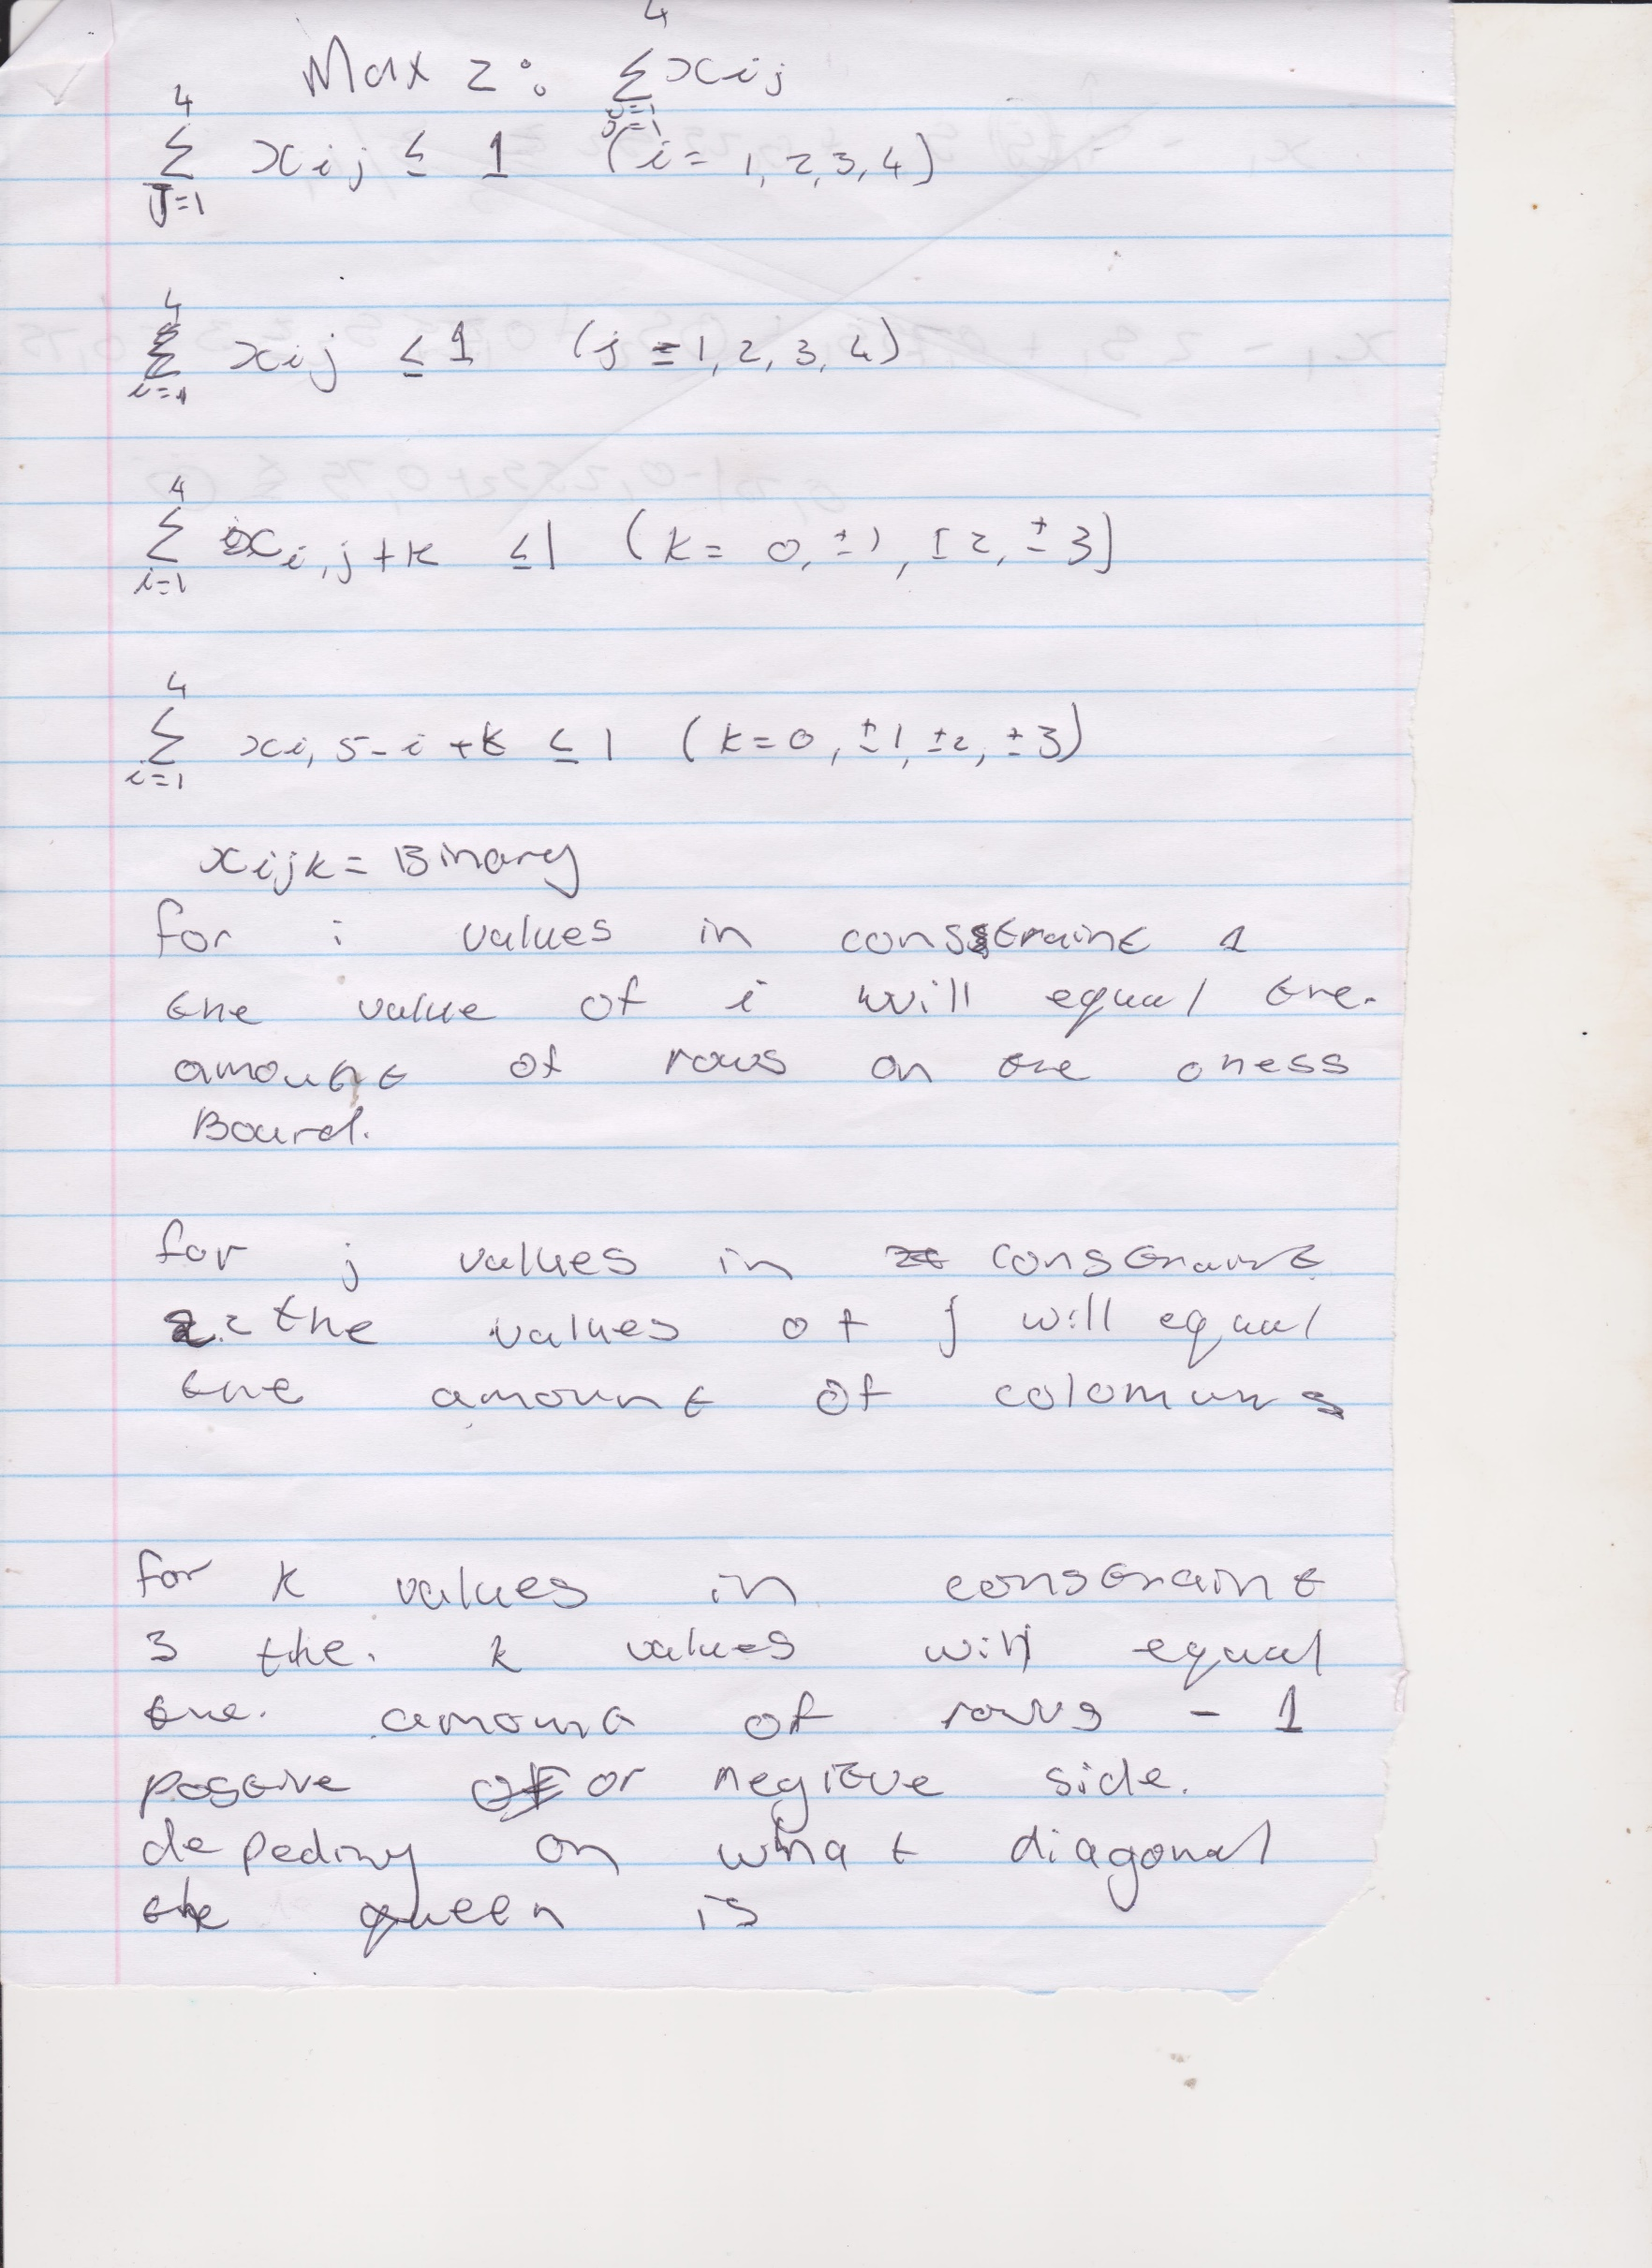 Max z: 4∑i=1 j=1 xij
4∑J=1 xij ≤ 1 (i = 1, 2, 3, 4)
4∑i=1 xij ≤ 1 (j = 1, 2, 3, 4)
4∑i=1 xi, j+k ≤ 1 (k = 0, ±1, ±2, ±3)
4∑i=1 xi, 5-i+k ≤ 1 (k=0, ±1, ±2, ±3)
xijk = Binary
for i values in constraint 1
the value of i will equal the.
amount of rows on the chess
Board.
for j values in constraint
2 the values of j will equal
the amount of colomuns
for k values in constraint
3 the. k values will equal
the. amount of rows - 1
posetive or negitive side.
depeding on what diagonal
the queen is